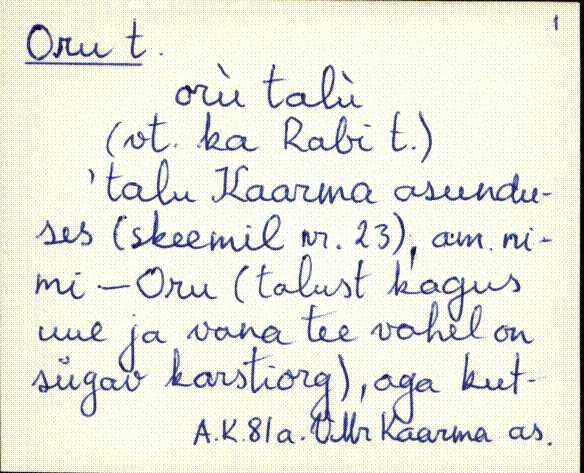 1
Oru t.
orù talù
(vt. ka Rabi t.)
'talu Kaarma asundu-
ses (skeemil nr. 23), am. ni-
mi – Oru (talust kagus
uue ja vana tee vahel on
sügav karstiorg), aga kut-
A.K. 81a. VMr Kaarma as.